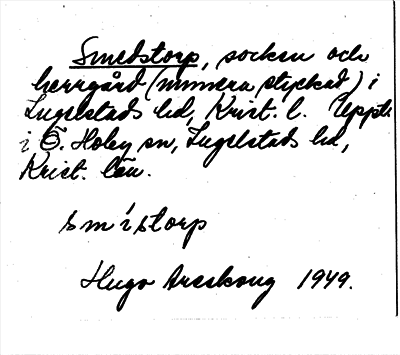 Smedstorp, socken och
herrgård (numera styckad) i
Ingelstads hd, Krist. l. Uppt.
i Ö. Hoby sn, Ingelstads hd,
Krist. län.
smístorp
Hugo Areskoug 1949.